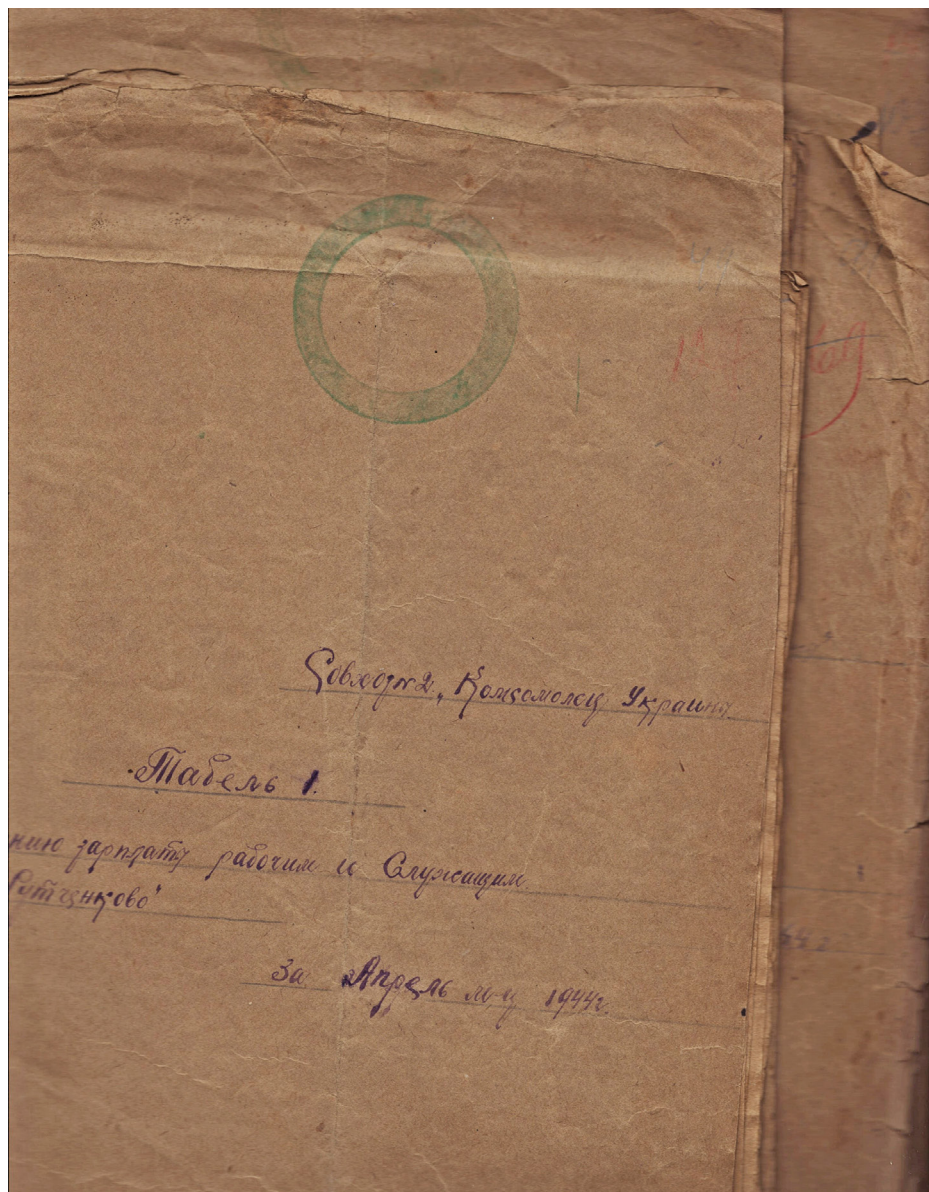 Совхоз №2 "Комсомолец Украины
Табель 1.
нию зарплату рабочим и Служищим
Рутченково"
За Апрель м-ц 1944г.